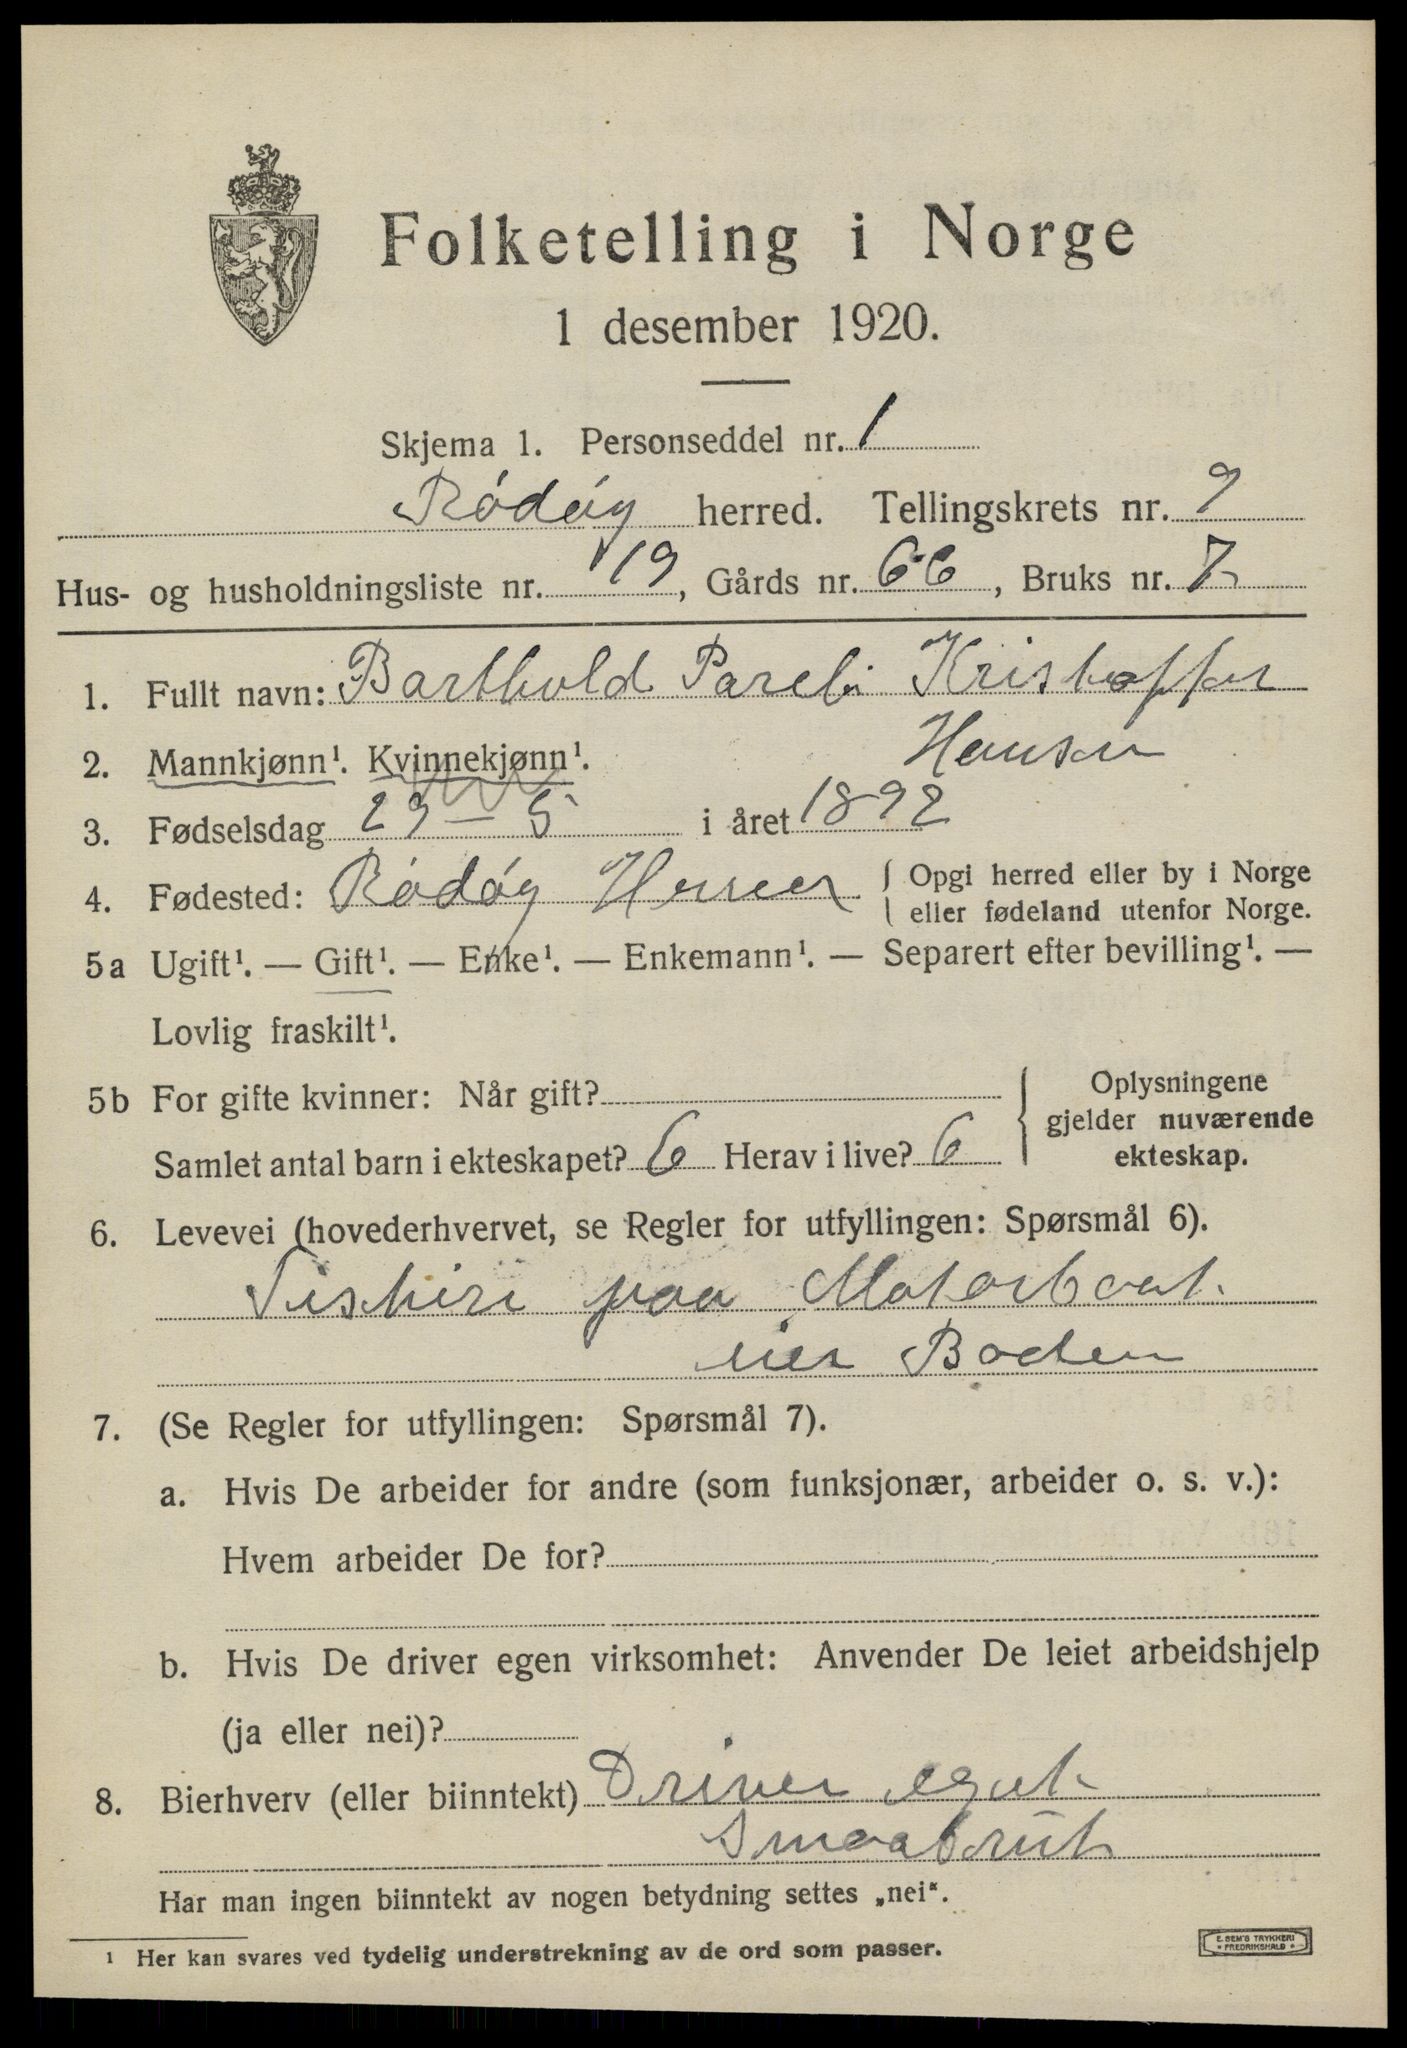 Folketelling i Norge
1 desember 1920.
Skjema 1. Personseddel nr. 1
Rödöy herred. Tellingskrets nr. 9
Hus- og husholdningsliste nr. 19, Gårds nr. 66, Bruks nr. 7
1. Fullt navn: Barthold Pareli Kristoffer
Hansen
2. Mannkjønn¹. Kvinnekjønn¹.
3. Fødselsdag 29 - 5 i året 1892
4. Fødested: Rödöy Herred { Opgi herred eller by i Norge
eller fødeland utenfor Norge.
5a Ugift¹. — Gift¹. — Enke¹. — Enkemann¹. — Separert efter bevilling¹. —
Lovlig fraskilt¹.
5b For gifte kvinner: Når gift?
Samlet antal barn i ekteskapet? 6 Herav i live? 6
Oplysningene
gjelder nuværende
ekteskap.
6. Levevei (hovederhvervet, se Regler for utfyllingen: Spørsmål 6).
Fiskeri paa Motorbaat
eier Baaden
7. (Se Regler for utfyllingen: Spørsmål 7).
a. Hvis De arbeider for andre (som funksjonær, arbeider o. s. v.):
Hvem arbeider De for?
b. Hvis De driver egen virksomhet: Anvender De leiet arbeidshjelp
(ja eller nei)?
8. Bierhverv (eller biinntekt) Driver eget
Smaabruk
Har man ingen biinntekt av nogen betydning settes „nei“.
¹ Her kan svares ved tydelig understrekning av de ord som passer.
E. SEM'S TRYKKERI
FREDRIKSHALD